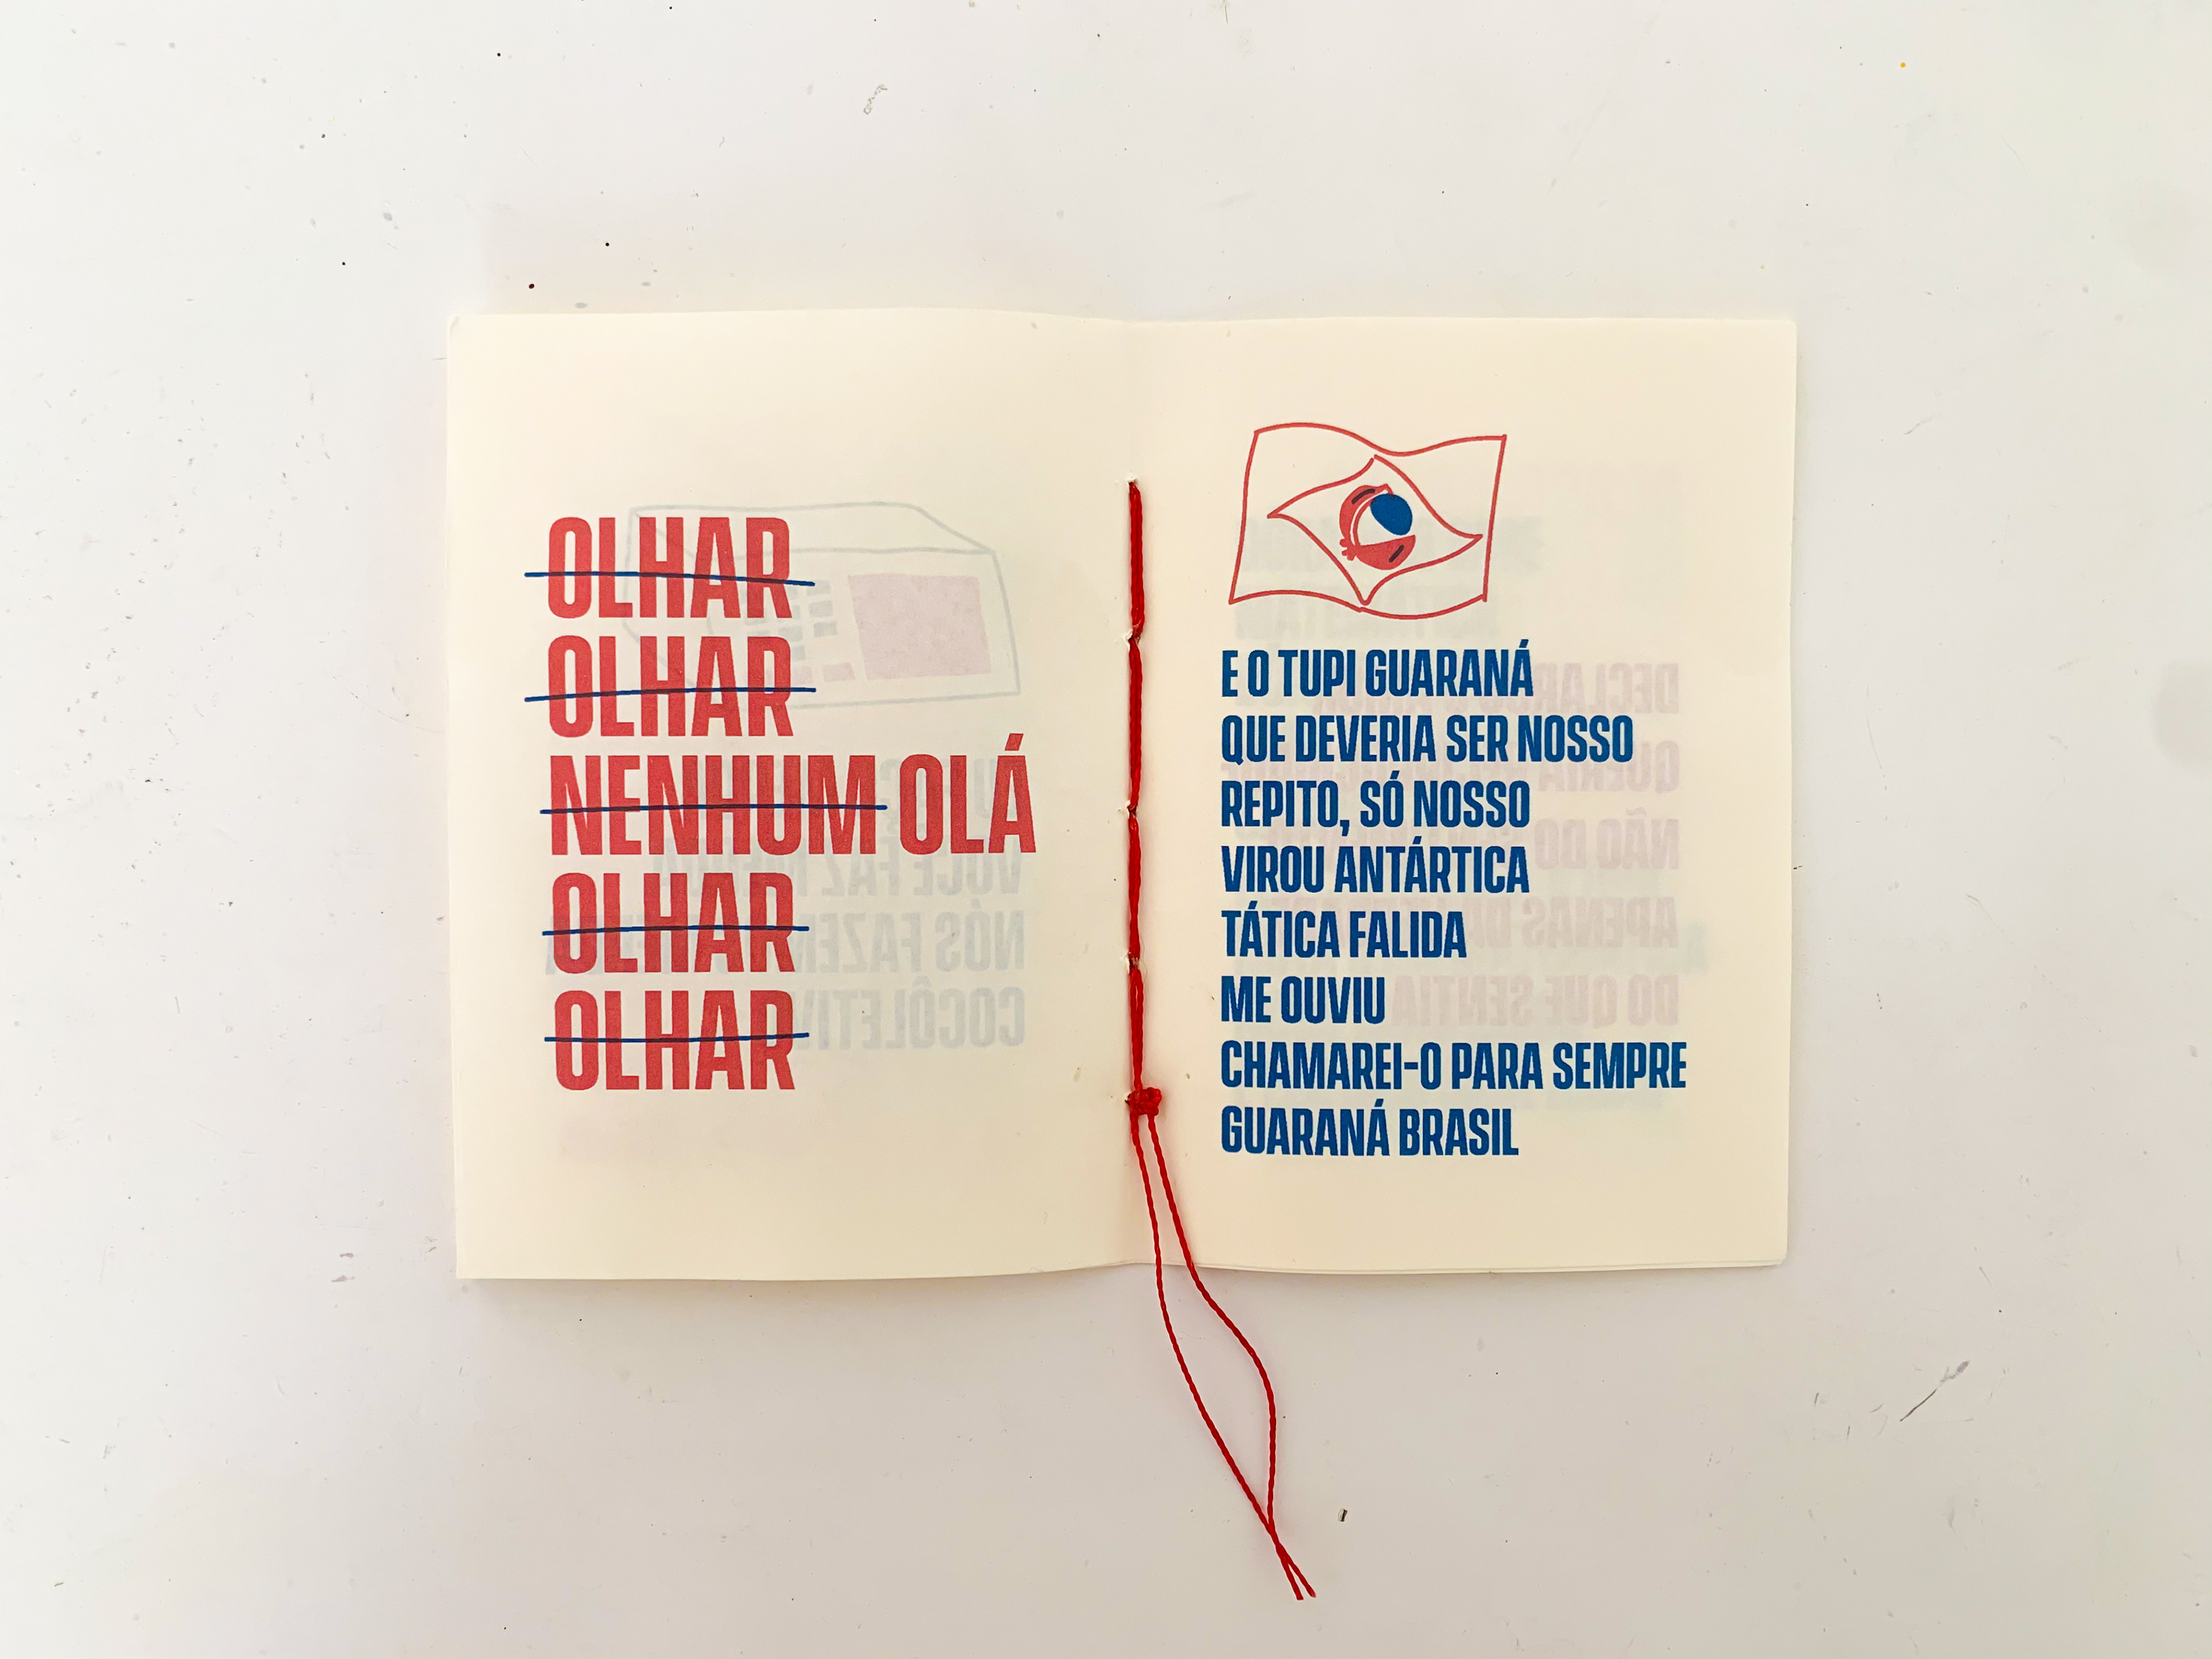 OLHAR
OLHAR
NENHUM OLÁ
OLHAR
OLHAR
E O TUPI GUARANÁ
QUE DEVERIA SER NOSSO
REPITO, SÓ NOSSO
VIROU ANTÁRTICA
TÁTICA FALIDA
ME OUVIU
CHAMAREI-O PARA SEMPRE
GUARANÁ BRASIL